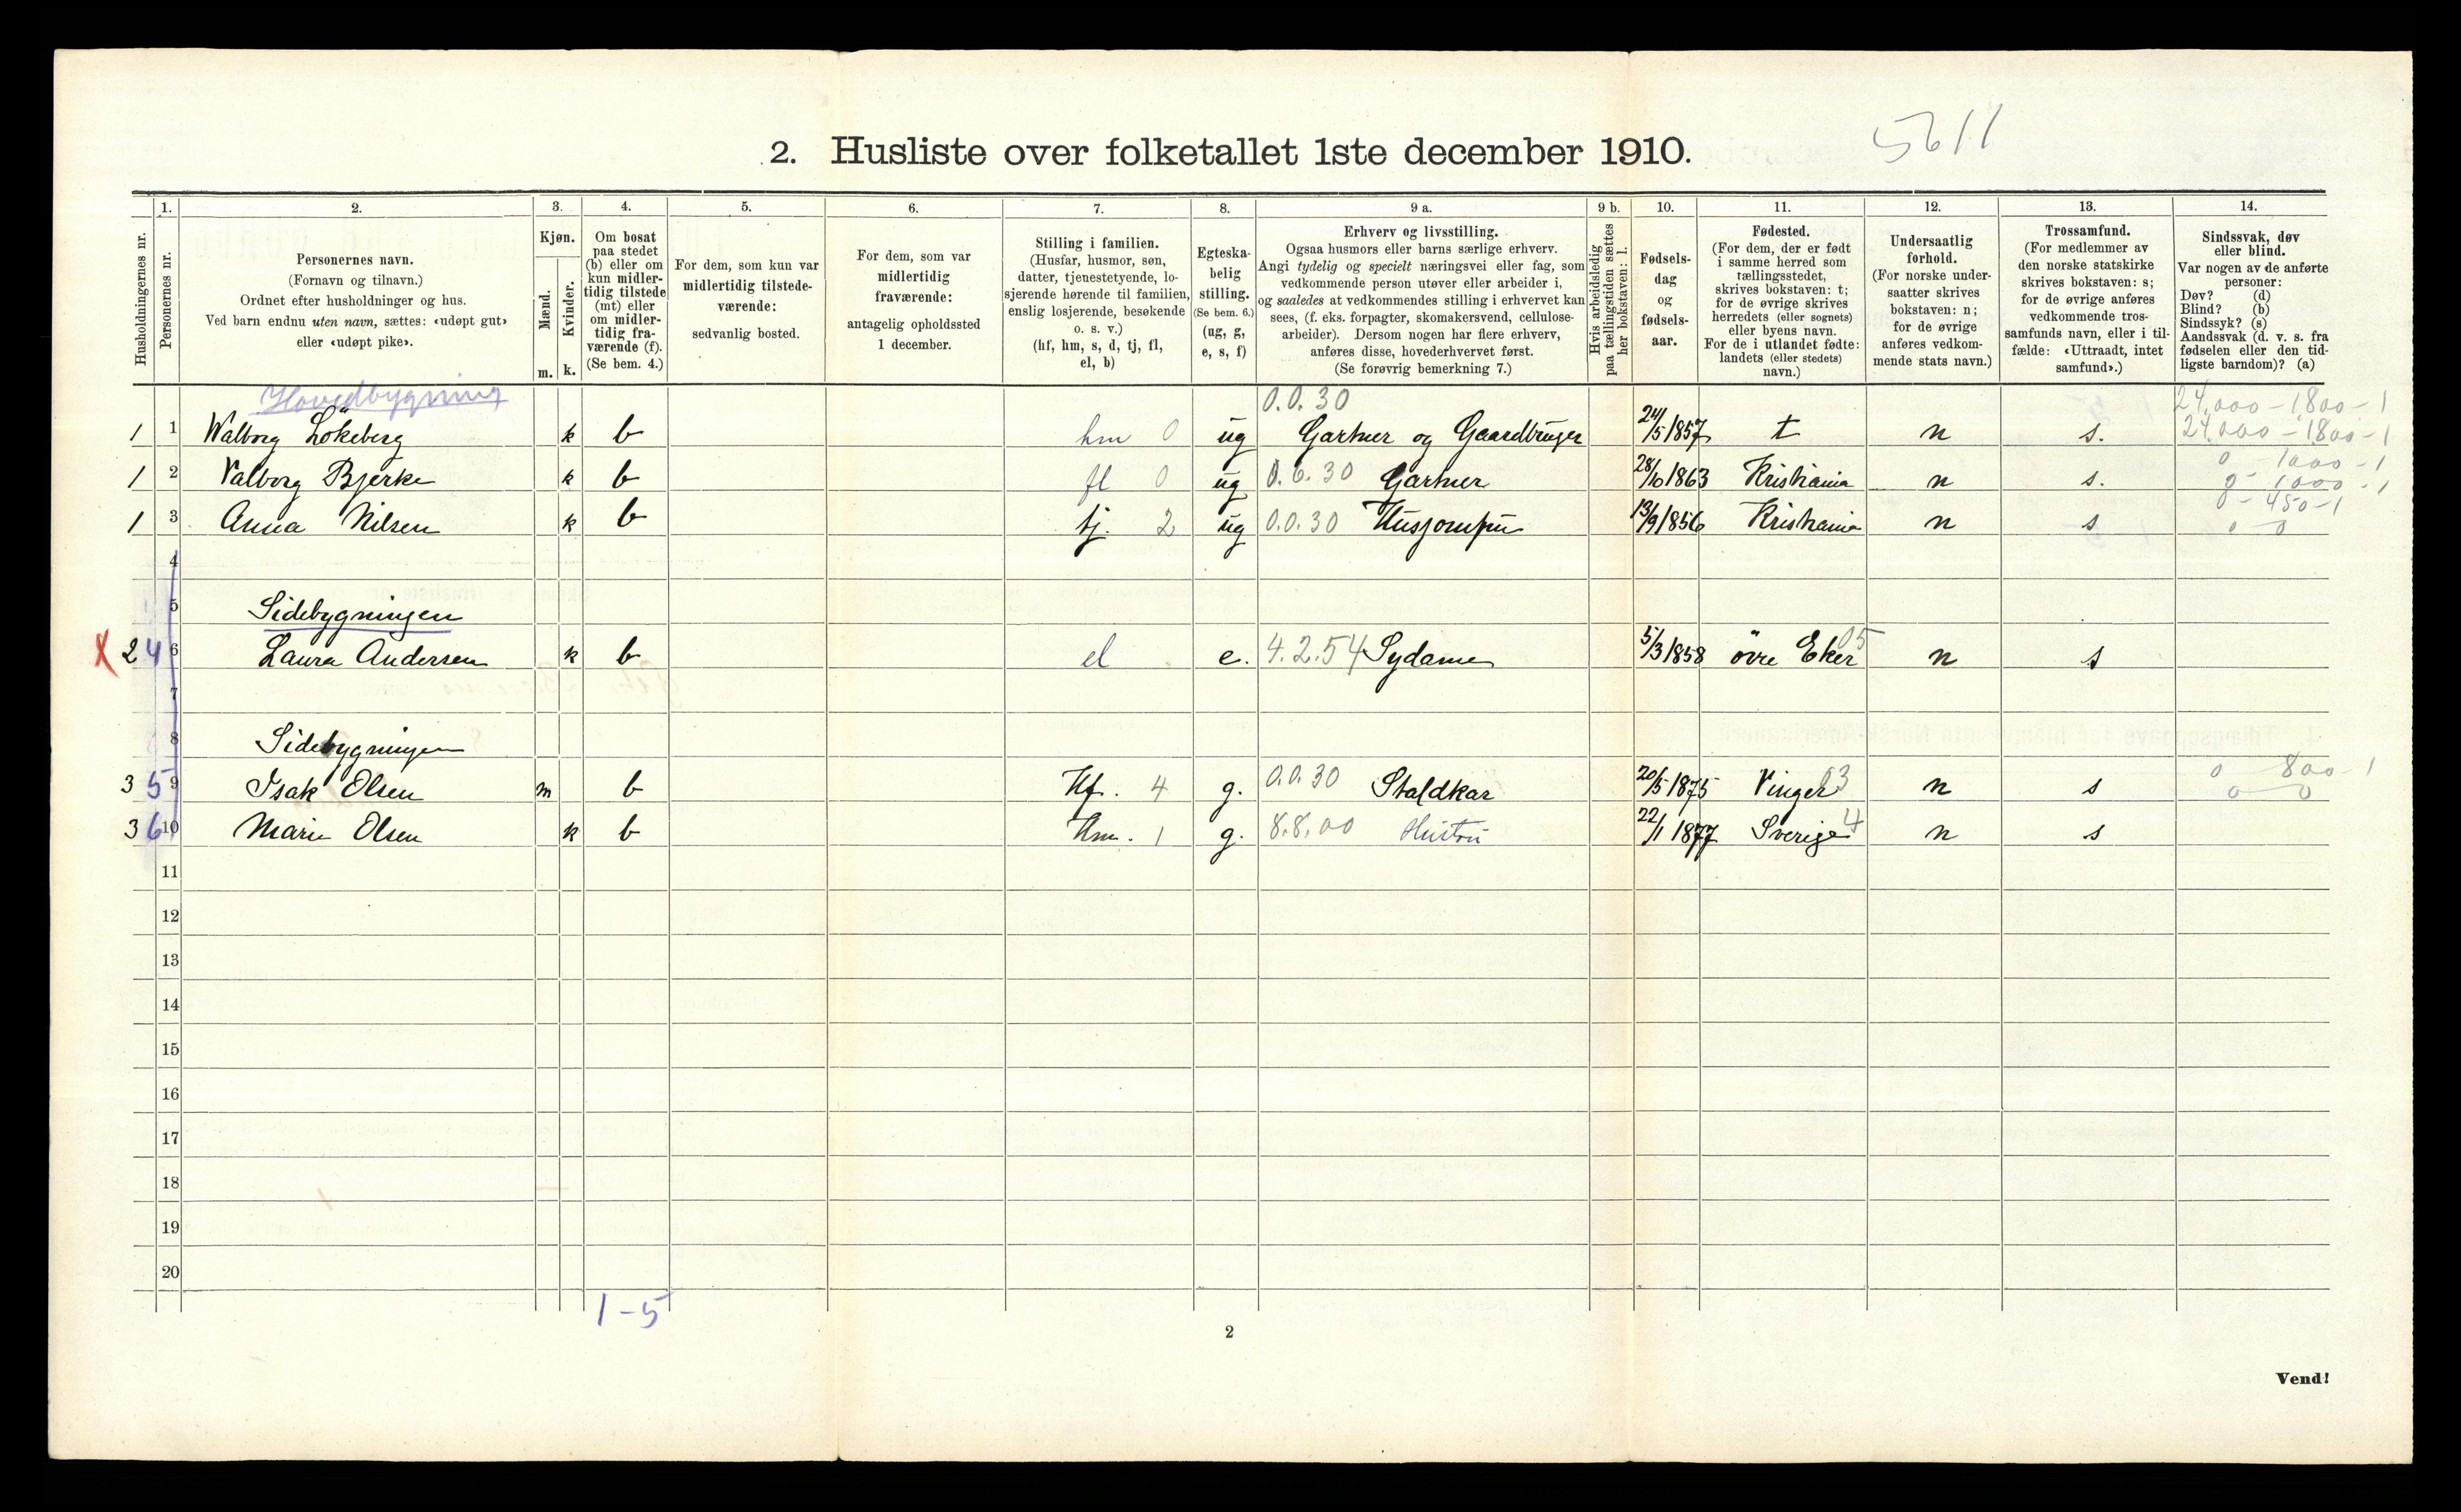 5611
2. Husliste over folketallet 1ste december 1910.
Husholdningernes nr.
1.
Personernes nr.
2.
Personernes navn.
(Fornavn og tilnavn.)
Ordnet efter husholdninger og hus.
Ved barn endnu uten navn, sættes: «udøpt gut»
eller «udøpt pike».
3.
Kjøn.
Mænd.
Kvinder.
m. k.
4.
Om bosat
paa stedet
(b) eller om
kun midler-
tidig tilstede
(mt) eller
om midler-
tidig fra-
værende (f).
(Se bem. 4.)
5.
For dem, som kun var
midlertidig tilstede-
værende:
sedvanlig bosted.
6.
For dem, som var
midlertidig
fraværende:
antagelig opholdssted
1 december.
7.
Stilling i familien.
(Husfar, husmor, søn,
datter, tjenestetyende, lo-
sjerende hørende til familien,
enslig losjerende, besøkende
o. s. v.)
(hf, hm, s, d, tj, fl,
el, b)
8.
Egteska-
belig
stilling.
(Se bem. 6.)
(ug, g,
e, s, f)
9 a.
Erhverv og livsstilling.
Ogsaa husmors eller barns særlige erhverv.
Angi tydelig og specielt næringsvei eller fag, som
vedkommende person utøver eller arbeider i,
og saaledes at vedkommendes stilling i erhvervet kan
sees, (f. eks. forpagter, skomakersvend, cellulose-
arbeider). Dersom nogen har flere erhverv,
anføres disse, hovederhvervet først.
(Se forøvrig bemerkning 7.)
9 b.
Hvis arbeidsledig
paa tællingstiden sættes
her bokstaven: l.
10.
Fødsels-
dag
og
fødsels-
aar.
11.
Fødested.
(For dem, der er født
i samme herred som
tællingsstedet,
skrives bokstaven: t;
for de øvrige skrives
herredets (eller sognets)
eller byens navn.
For de i utlandet fødte:
landets (eller stedets)
navn.)
12.
Undersaatlig
forhold.
(For norske under-
saatter skrives
bokstaven: n;
for de øvrige
anføres vedkom-
mende stats navn.)
13.
Trossamfund.
(For medlemmer av
den norske statskirke
skrives bokstaven: s;
for de øvrige anføres
vedkommende tros-
samfunds navn, eller i til-
fælde: «Uttraadt, intet
samfund».)
14.
Sindssvak, døv
eller blind.
Var nogen av de anførte
personer:
Døv? (d)
Blind? (b)
Sindssyk? (s)
Aandssvak (d. v. s. fra
fødselen eller den tid-
ligste barndom)? (a)
Hovedbygning 0.0.30 24,000 - 1,800 - 1
1 1 Walborg Lökeberg k b hm 0 ug Gartner og Gaardbruger 24/5 1857 t n s. 24,000 - 1800 - 1
0 1000 - 1
1 2 Valborg Bjerke k b fl 0 ug 0.6.30 Gartner 28/10 1863 Kristiania n s. 0 - 1000 - 1
0 - 450 - 1
1 3 Anna Nilsen k b tj. 2 ug 0.0.30 Husjomfru 13/9 1856 Kristiania n s 0 0
4
5 Sidebygningen
X 2 4 6 Laura Andersen k b el e. 4.2.54 Sydame 5/3 1858 övre Eker 05 n s
7
8 Sidebygningen
0 800 - 1
3 5 9 Isak Olsen m b Hf. 4 g. 0.0.30 Staldkar 20/5 1875 Vinger 03 n s 0 0
3 6 10 Marie Olsen k b Hm. 1 g. 8.8.00 Hustru 22/1 1877 Sverige 4 n s
11
12
13
14
15
16
17
18
19
20
1-5
2
Vend!